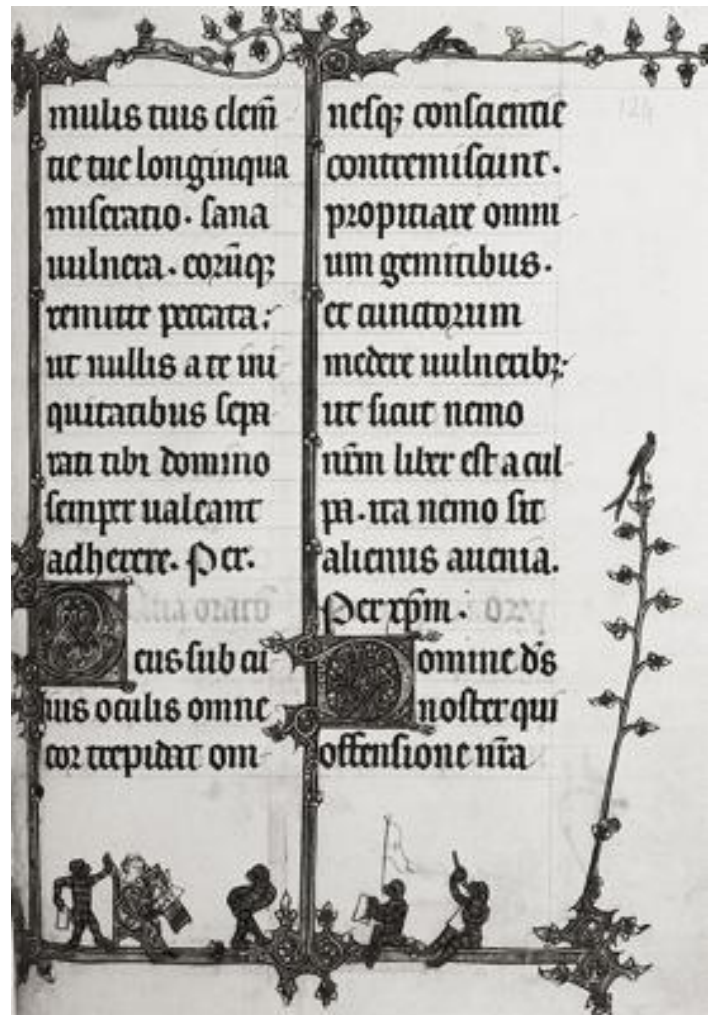 mulis tuis clem̄
tie tue longinqua
miseratio. sana
uulnera. corūqꝫ
remitte peccata:
ut nullis a te ini
quitatibus sepa
rati tibi domino
semper ualeant
adherere. Per.
Alia oratō
Deus sub cu
ius oculis omne
cor trepidat om
nesqꝫ conscientie
contremiscunt.
propitiare omni
um gemitibus.
et cunctorum
medere uulneribꝫ
ut sicut nemo
nr̄m liber est a cul
pa. ita nemo sit
alienus auenia.
Per xp̄m.
Domine d̄s
noster qui
offensione nr̄a
124